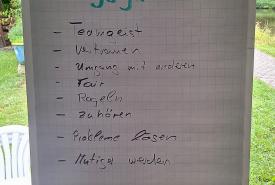 - Teamgeist
- Vertrauen
- Umgang mit anderen
- Fair
- Regeln
- Zuhören
- Probleme lösen
- Mutiger werden